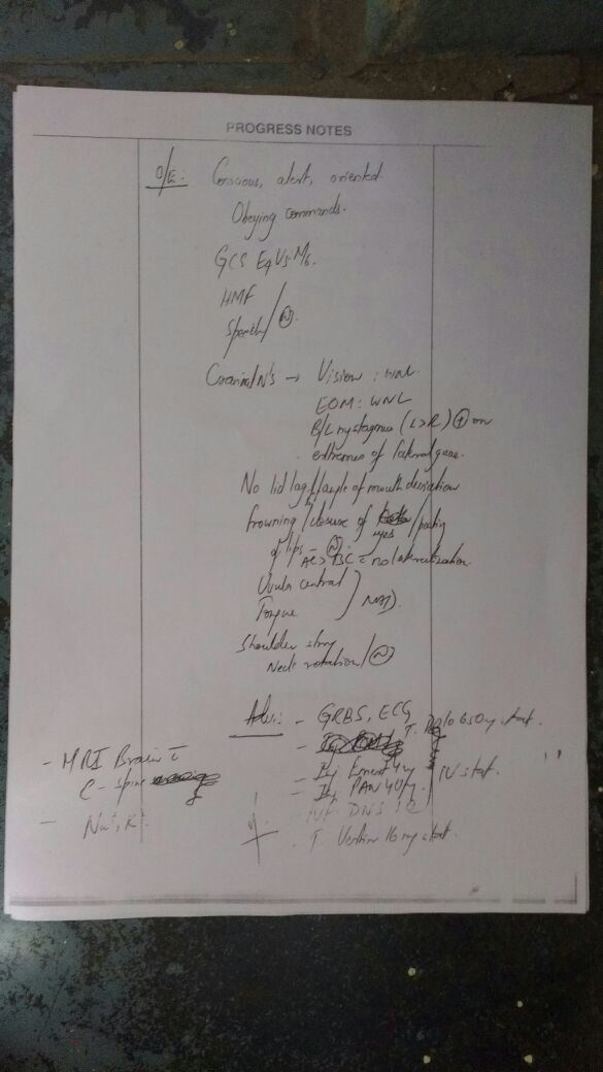 PROGRESS NOTES
O/E: Conscious, alert, oriented.
Obeying commands.
GCS E4 V5 M6.
HMF
Speech / (N).
Cranial N's → Vision : WNL
EOM : WNL
B/L nystagmus (L>R) (+) on
extremes of lateral gaze.
No lid lag / angle of mouth deviation
frowning / closure of eyes /
of lips - (N).
AC > BC no lateralization.
Uvula central
Tongue } NAD.
Shoulder
Neck rotation / (N)
Adv: - GRBS, ECG
T. 650mg stat.
- Inj Emeset 4mg
- Inj PAN 40mg } IV stat.
IVF DNS
T. Vertin 16mg stat.
- MRI Brain c
C-spine
- Na+, K+.